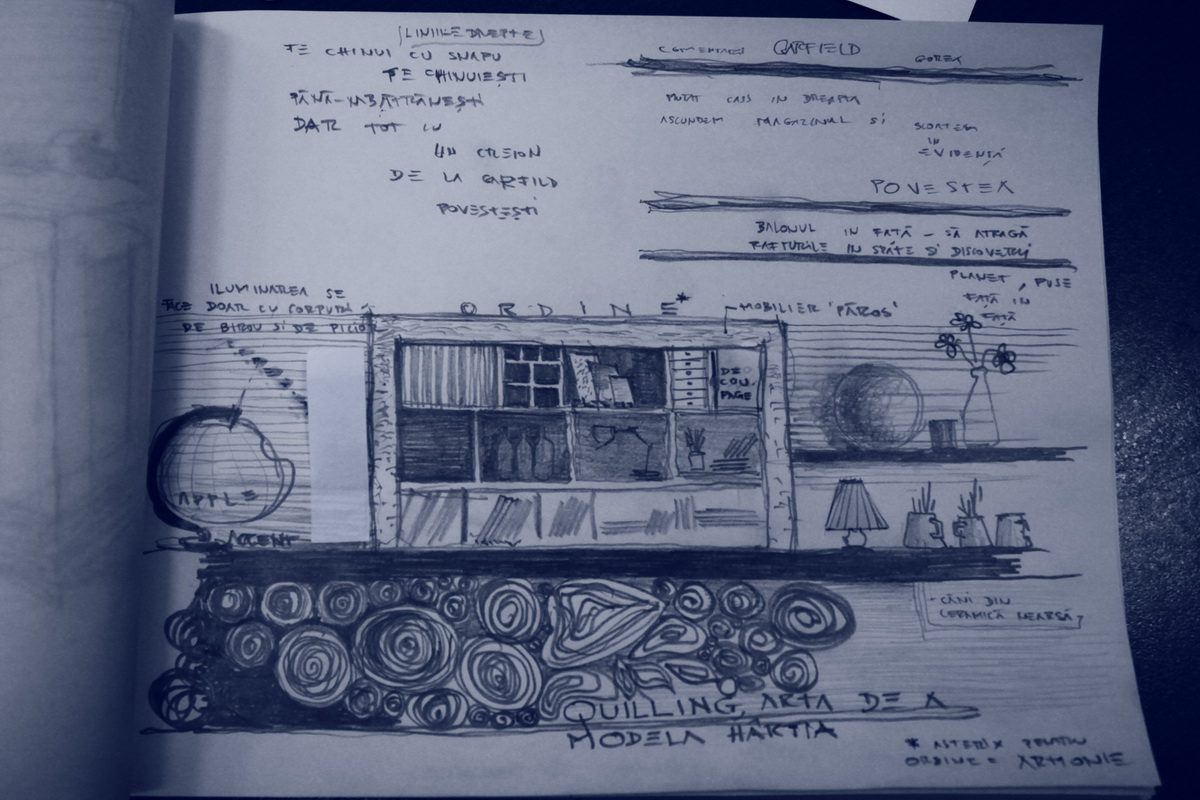 LINIILE DREPTE
TE CHINUI CU SNAPU
TE CHINUIEȘTI
PÂNĂ-MBĂTRÂNEȘTI
DAR TOT CU
UN CREION
DE LA GARFILD
POVESTEȘTI
COMENTARII GARFIELD
MUTAT CASS IN DREAPTA
ASCUNDEM MAGAZINUL SI SCOATEM
IN
EVIDENȚĂ
POVESTEA
BALONUL IN FAȚĂ - SĂ ATRAGĂ
RAFTURILE IN SPATE SI DISCOVERY
PLANET, PUSE
FAȚĂ IN
FAȚĂ
ILUMINAREA SE
FACE DOAR CU CORPURI
DE BIROU SI DE PICIO
ORDINE*
MOBILIER 'PĂROS'
DE
COU
PAGE
APPLE
ACCENT
- CĂNI DIN
CERAMICĂ NEARSĂ
QUILLING, ARTA DE A
MODELA HÂRTIA
* ASTERIX PENTRU
ORDINE = ARMONIE